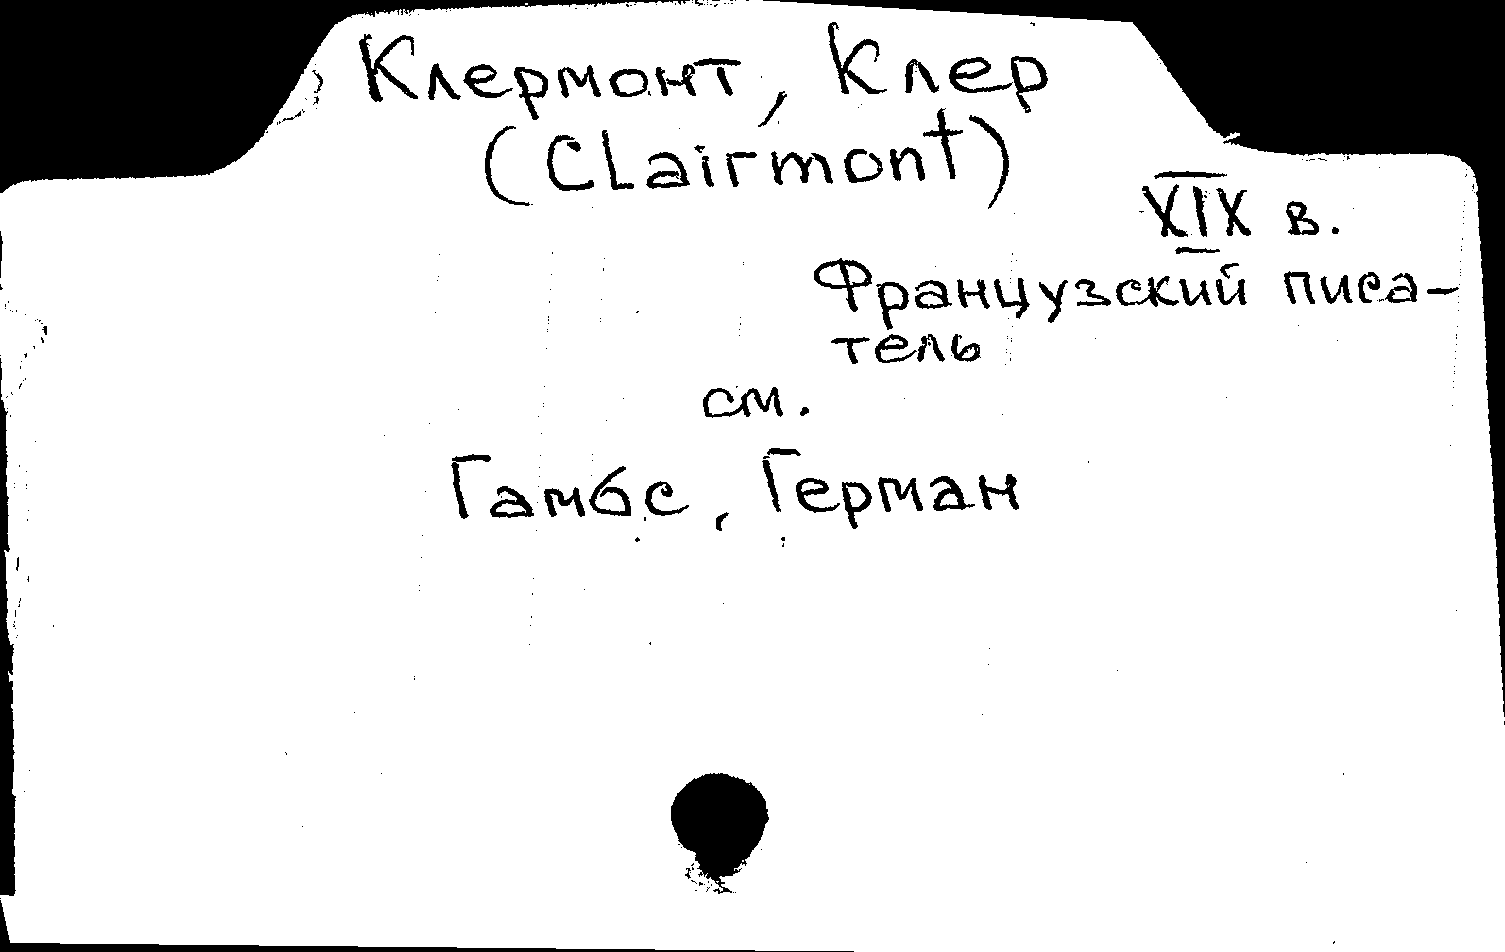 Клермонт, Клер
(CLairmont)
XIX в.
Французский писа-
тель
см.
Гамбс, Герман